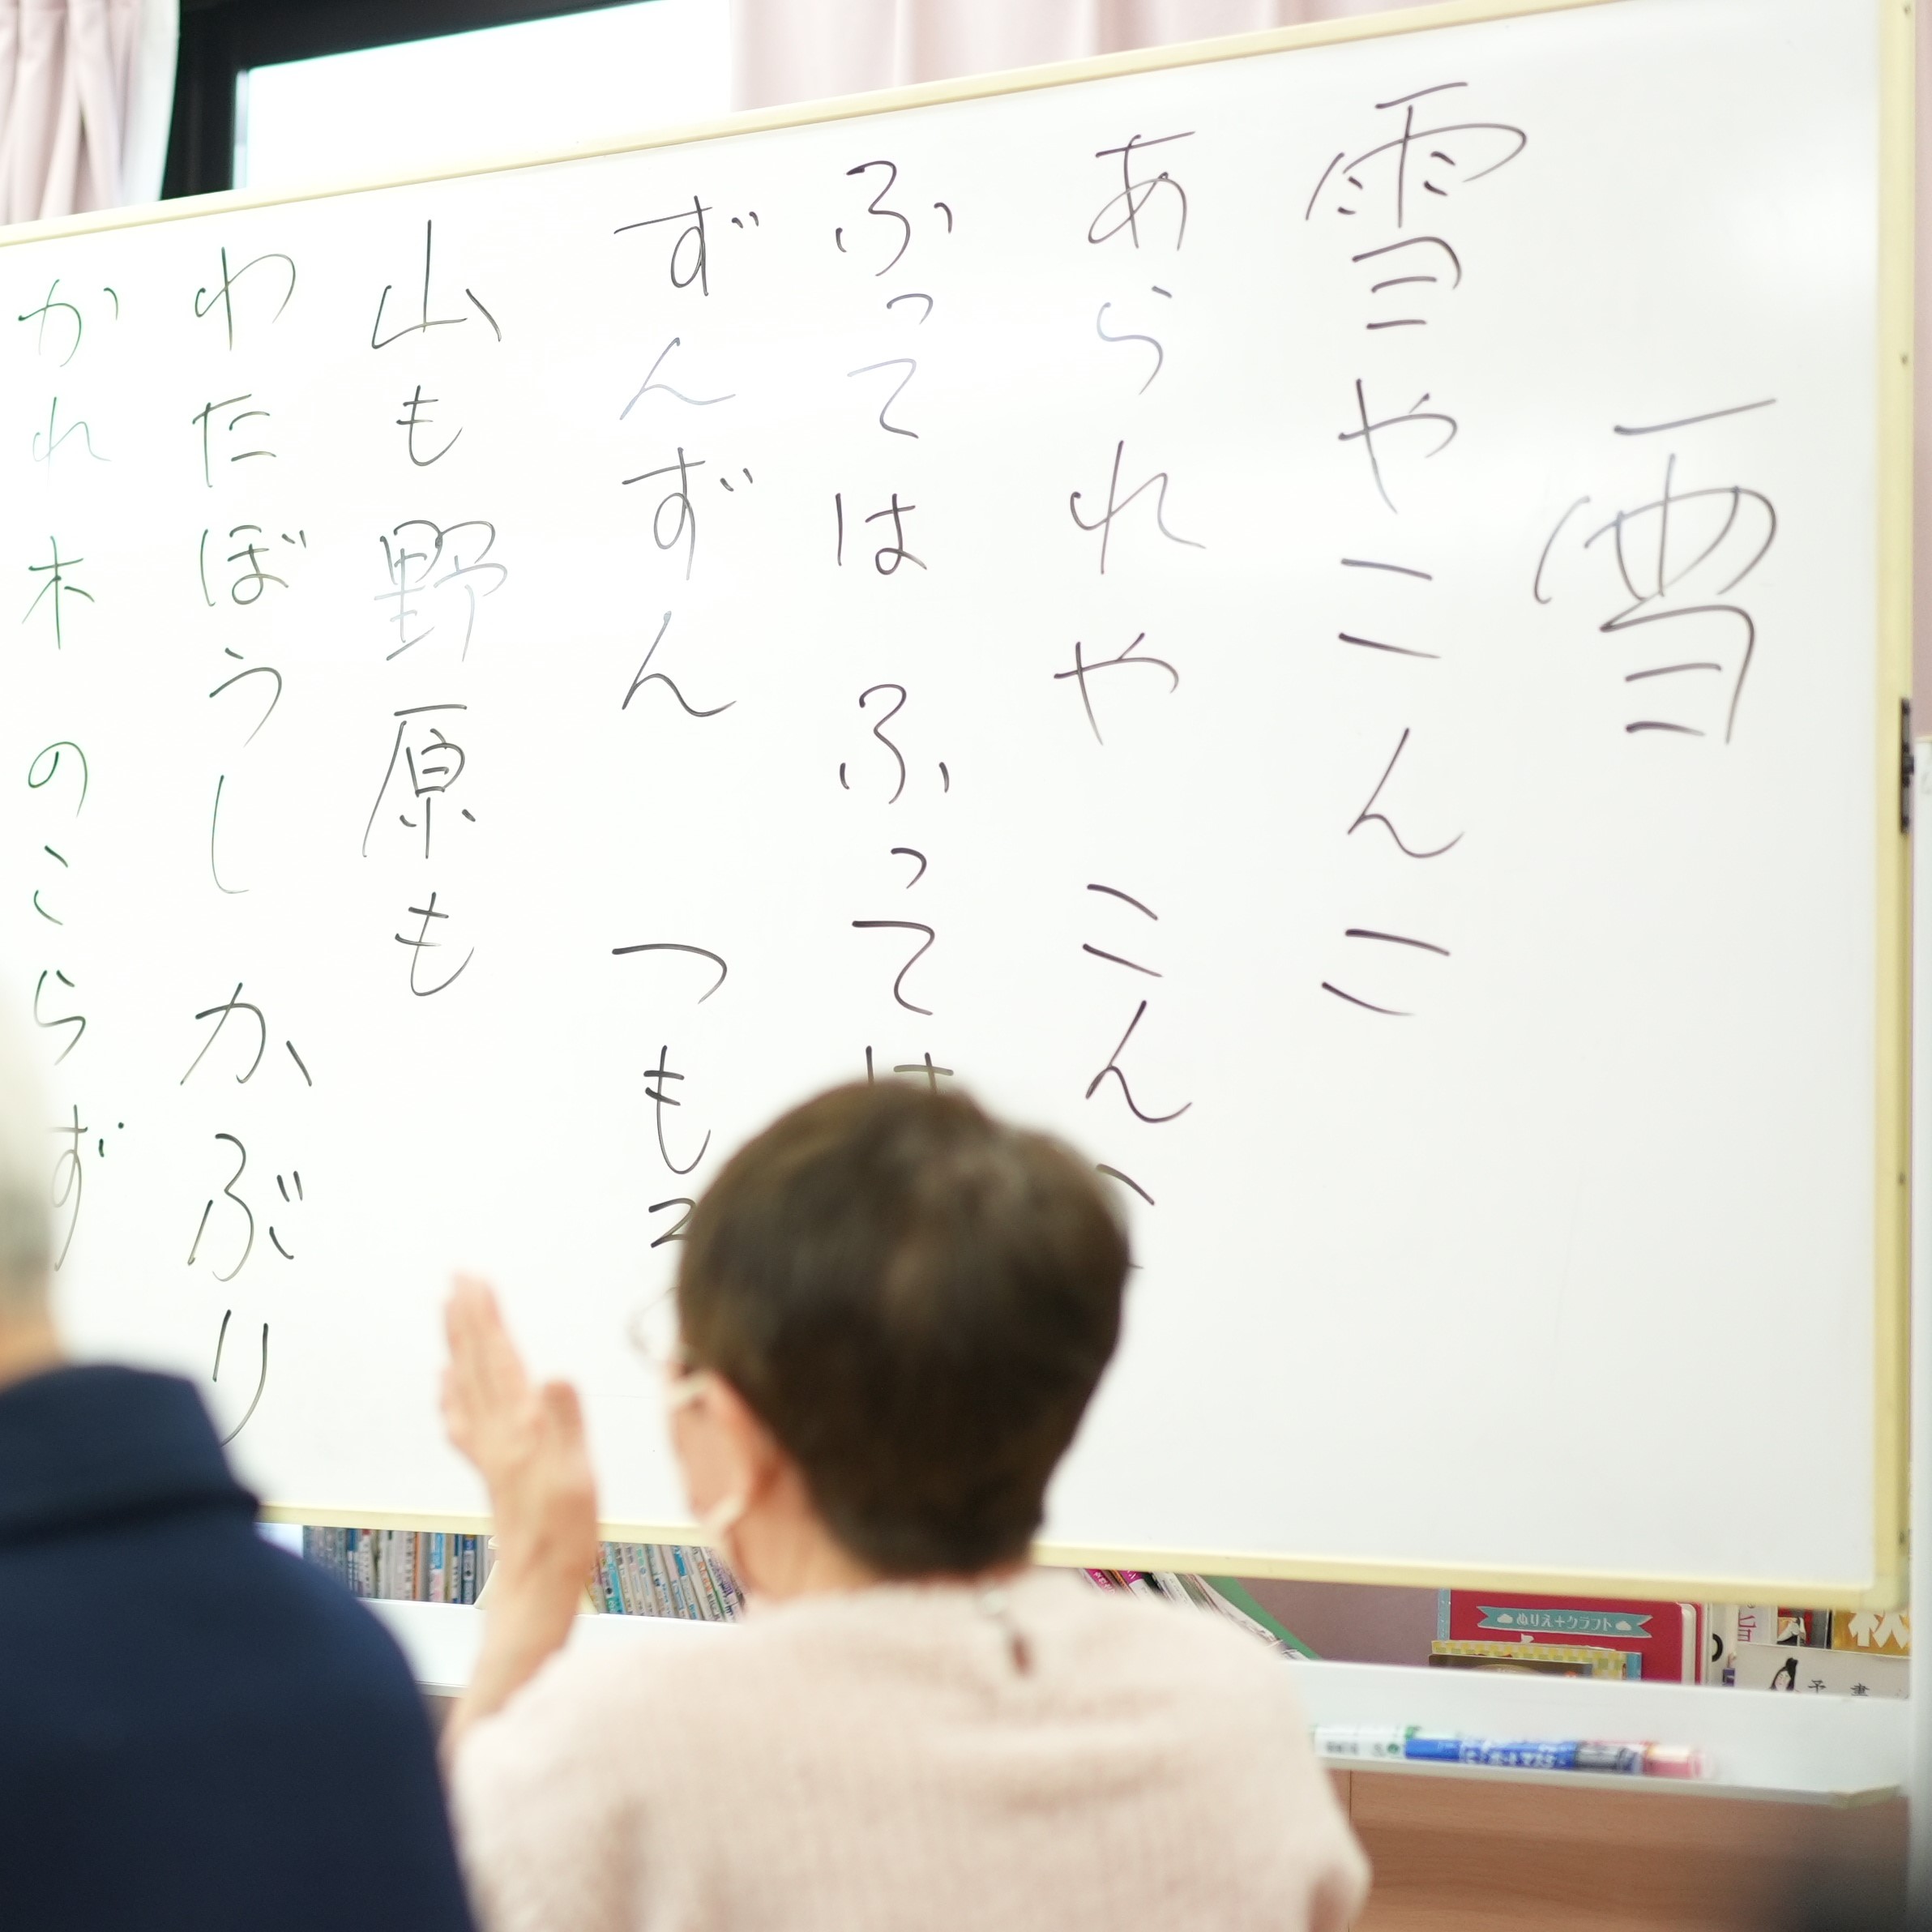 雪
雪やこんこ
あられや こんこ
ふっては ふっては
ずんずん つもる
山も野原も
わたぼうし かぶり
かれ木 のこらず
ぬりえ+クラフト